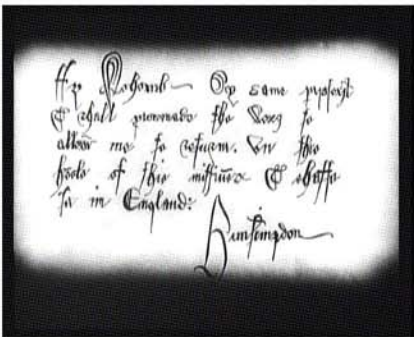 My Beloved— By some pretext
I shall persuade the King to
allow me to return. On the
heels of this missive I shall
be in England:
Huntingdon